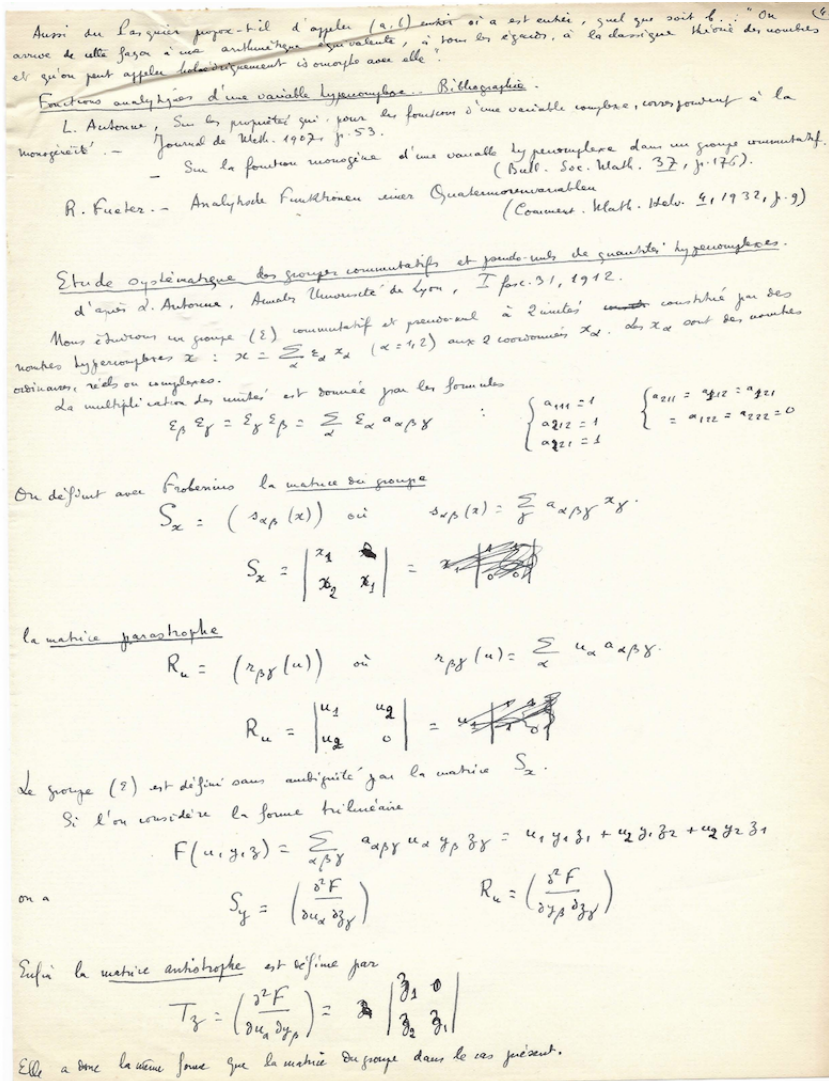 Aussi du Pasquier propose-t-il d'appeler (a, b) entier si a est entier, quel que soit b... "On
arrive de cette façon à une arithmétique équivalente, à tous les égards, à la classique théorie des nombres
et qu'on peut appeler holoédriquement isomorphe avec elle".
Fonctions analytiques d'une variable hypercomplexe.. Bibliographie.
L. Autonne, Sur les propriétés qui, pour les fonctions d'une variable complexe, correspondent à la
monogénéité. - Journal de Math. 1907, p. 53.
- Sur la fonction monogène d'une variable hypercomplexe dans un groupe commutatif.
(Bull. Soc. Math. 37, p. 176).
R. Fueter. - Analytische Funktionen einer Quaternionenvariablen
(Comment. Math. Helv. 4, 1932, p. 9)
Etude systématique des groupes commutatifs et pseudo-nuls de quantités hypercomplexes.
d'après L. Autonne, Annales Université de Lyon, I fasc. 31, 1912.
Nous étudions un groupe (ε) commutatif et pseudo-nul à 2 unités constitué par des
nombres hypercomplexes x : x = ∑_α ε_α x_α (α = 1, 2) aux 2 coordonnées x_α. Les x_α sont des nombres
ordinaires, réels ou complexes.
La multiplication des unités est donnée par les formules
ε_β ε_γ = ε_γ ε_β = ∑_α ε_α a_αβγ : { a_111 = 1 a_212 = 1 a_221 = 1 { a_211 = a_112 = a_121 = a_122 = a_222 = 0
On définit avec Frobenius la matrice du groupe
S_x = (s_αβ(x)) où s_αβ(x) = ∑_γ a_αβγ x_γ.
S_x = | x_1 0 | =
| x_2 x_1 |
la matrice parastrophe
R_u = (r_βγ(u)) où r_βγ(u) = ∑_α u_α a_αβγ.
R_u = | u_1 u_2 | =
| u_2 0 |
Le groupe (ε) est défini sans ambiguité par la matrice S_x.
Si l'on considère la forme trilinéaire
F(u, y, z) = ∑_αβγ a_αβγ u_α y_β z_γ = u_1 y_1 z_1 + u_2 y_1 z_2 + u_2 y_2 z_1
on a S_y = (∂²F / ∂u_α ∂z_γ) R_u = (∂²F / ∂y_β ∂z_γ)
Enfin la matrice antistrophe est définie par
T_z = (∂²F / ∂u_α ∂y_β) = | z_1 0 |
| z_2 z_1 |
Elle a donc la même forme que la matrice du groupe dans le cas présent.